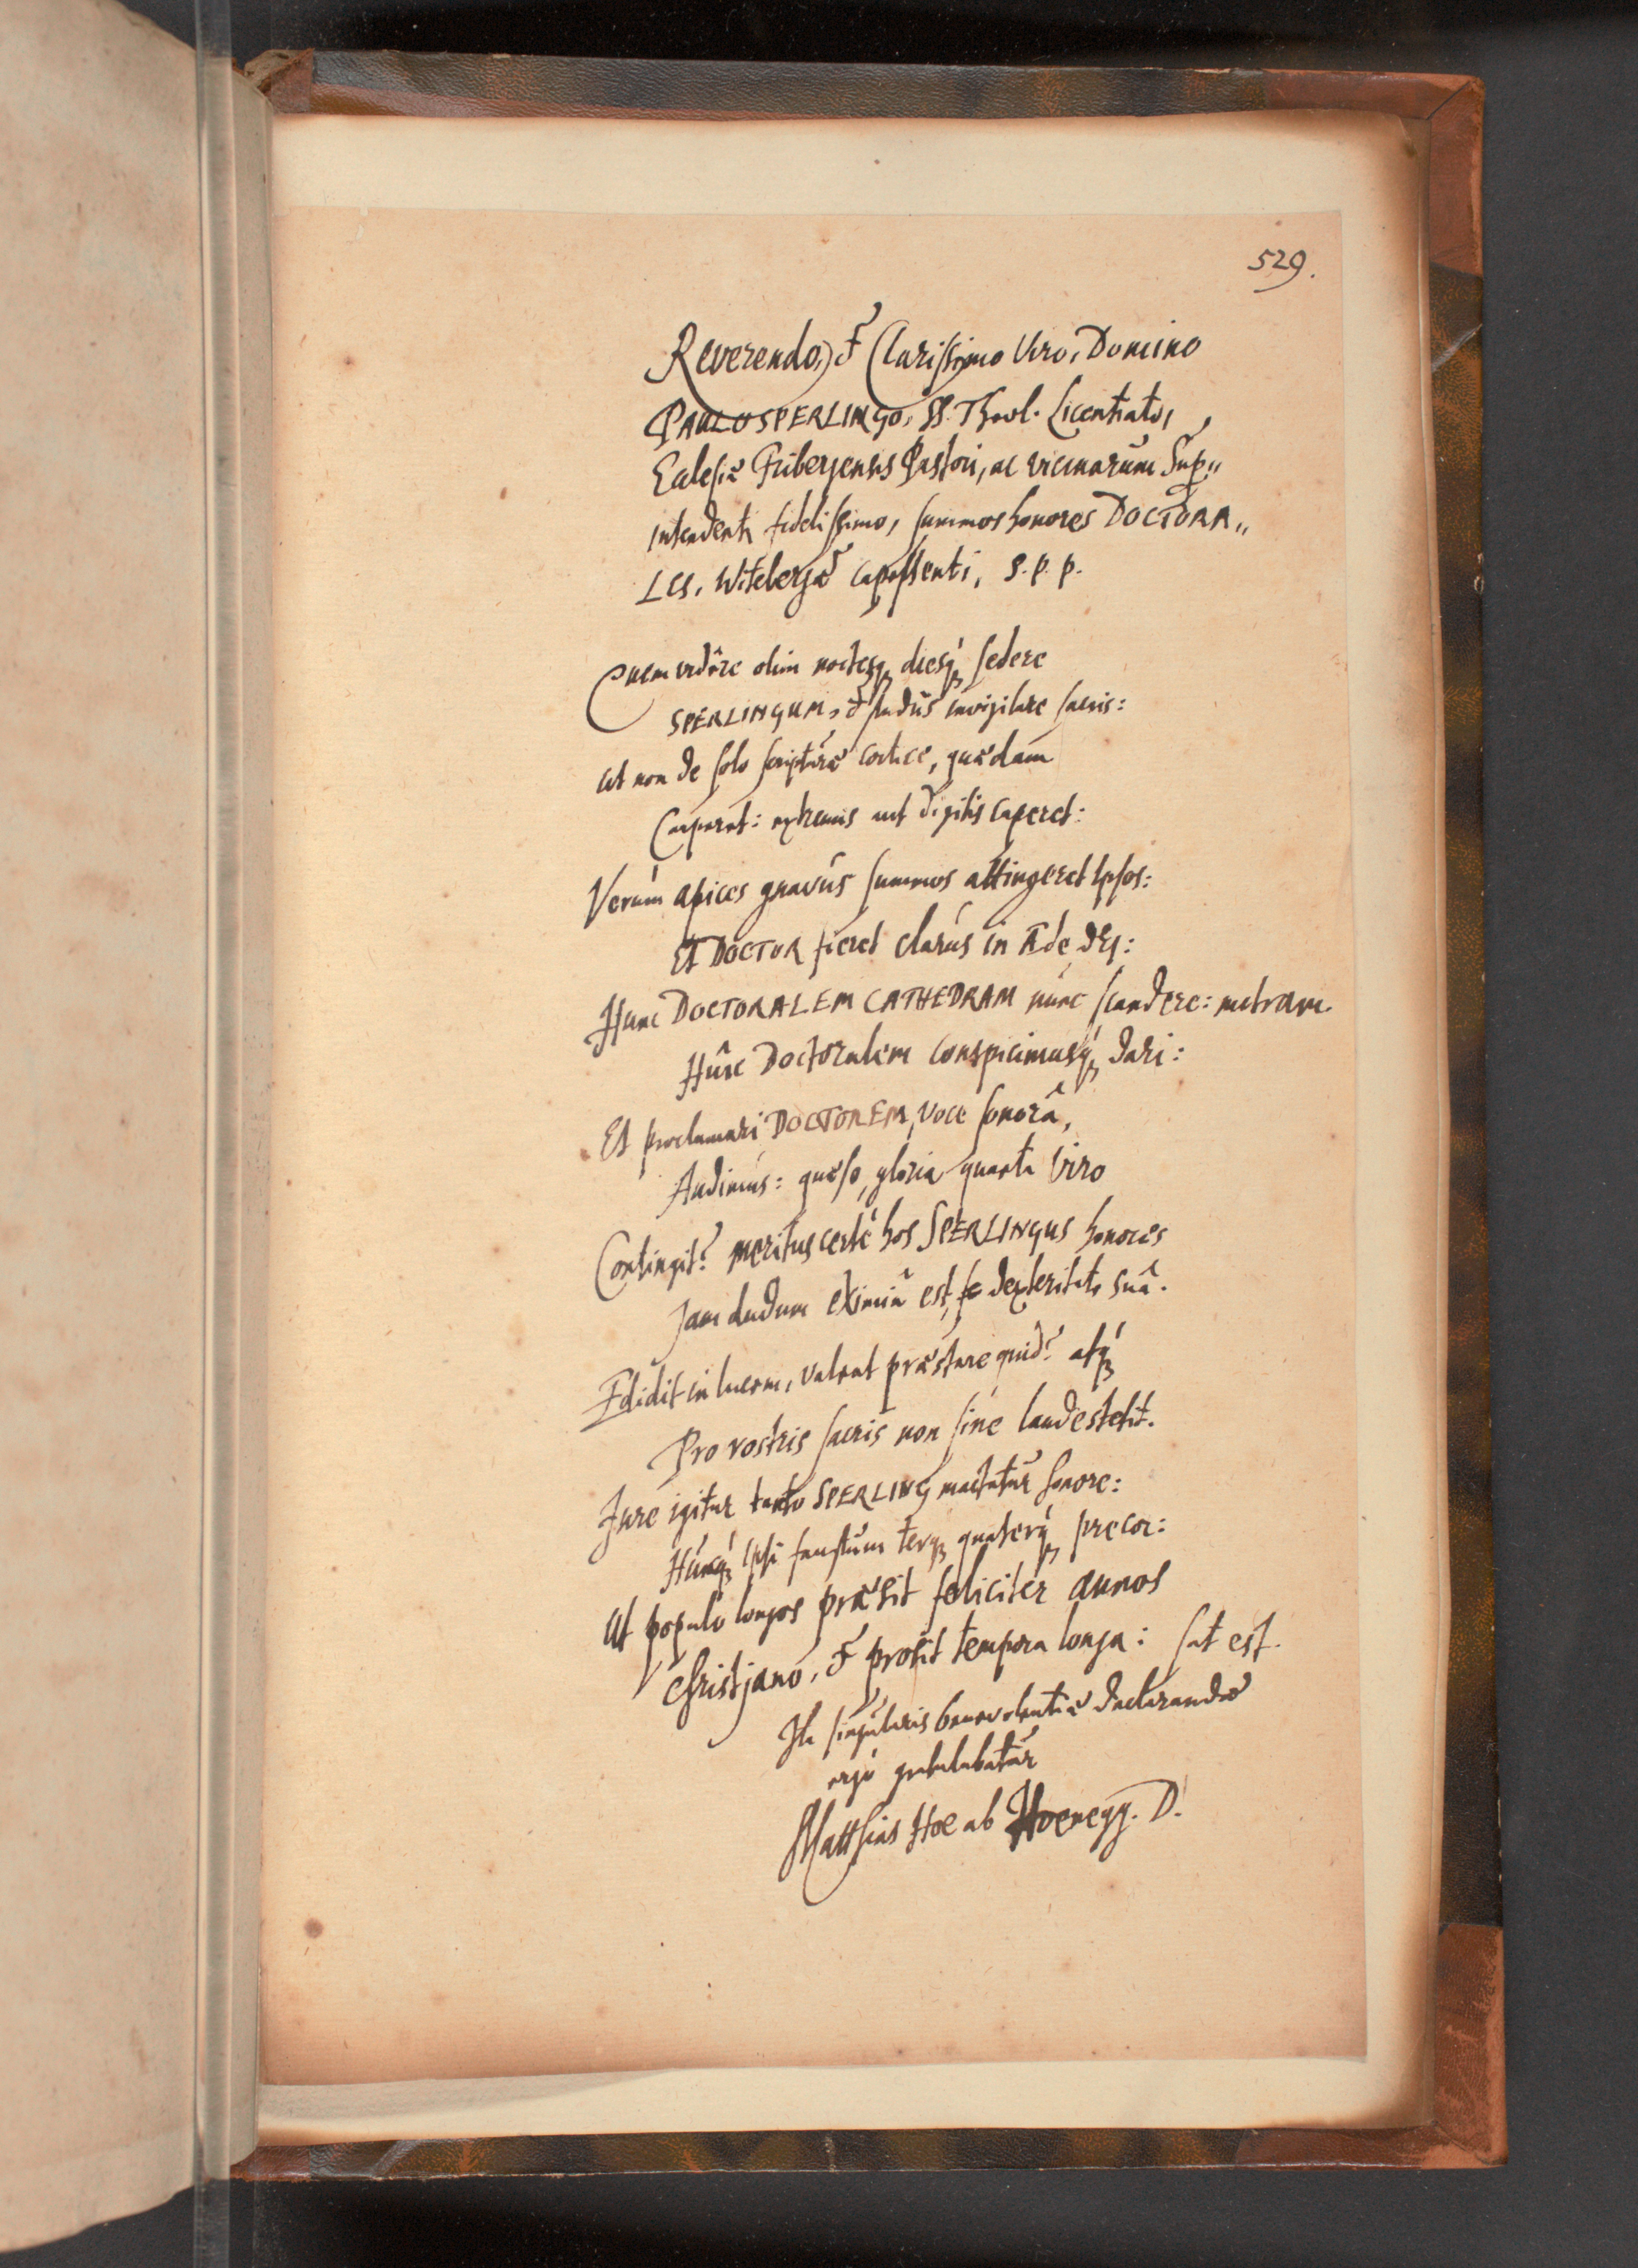 529.
Reverendo, & Clarissimo Viro, Domino
PAULO SPERLINGO, SS. Theol. Licentiato,
Eclesiæ Fribergensis Pastori, ac vicinarum Sup„
intendenti fidelissimo, summos honores DOCTORA„
LES, Witebergæ capessenti, S. P. P.
Quem vidêre olim noctesq́; diesq́; sedere
SPERLINGUM, & studiis invigilare sacris:
Ut non de solo scripturæ cortice, quædam
Carperet: extremis aut digitis caperet:
Verùm apices gnavus summos attingeret ipsos:
Et DOCTOR fieret clarus in Æde DEI:
Hunc DOCTORALEM CATHEDRAM nunc scandere: mitram
Hûic Doctoralem conspicimusq́; dari:
Et proclamari DOCTOREM, voce sonorâ,
Audimus: quæso, gloria quanta Viro
Contingit? meritus certè hos SPERLINGUS honores
Jam dudum eximiâ est, se dexteritate suâ.
Edidit in lucem, valeat præstare quid? atq́;
Pro rostris sacris non sine laude stetit.
Jure igitur tanto SPERLING mactatur honore:
Huncq́; ipsi faustum terq́; quaterq́; precor:
Ut populo longos præsit feliciter annos
Christjano, & prosit tempora longa: sat est.
Ita singularis benevolentiæ declarandæ
ergò gratulabatur
Matthias Hoe ab Hoenegg. D.